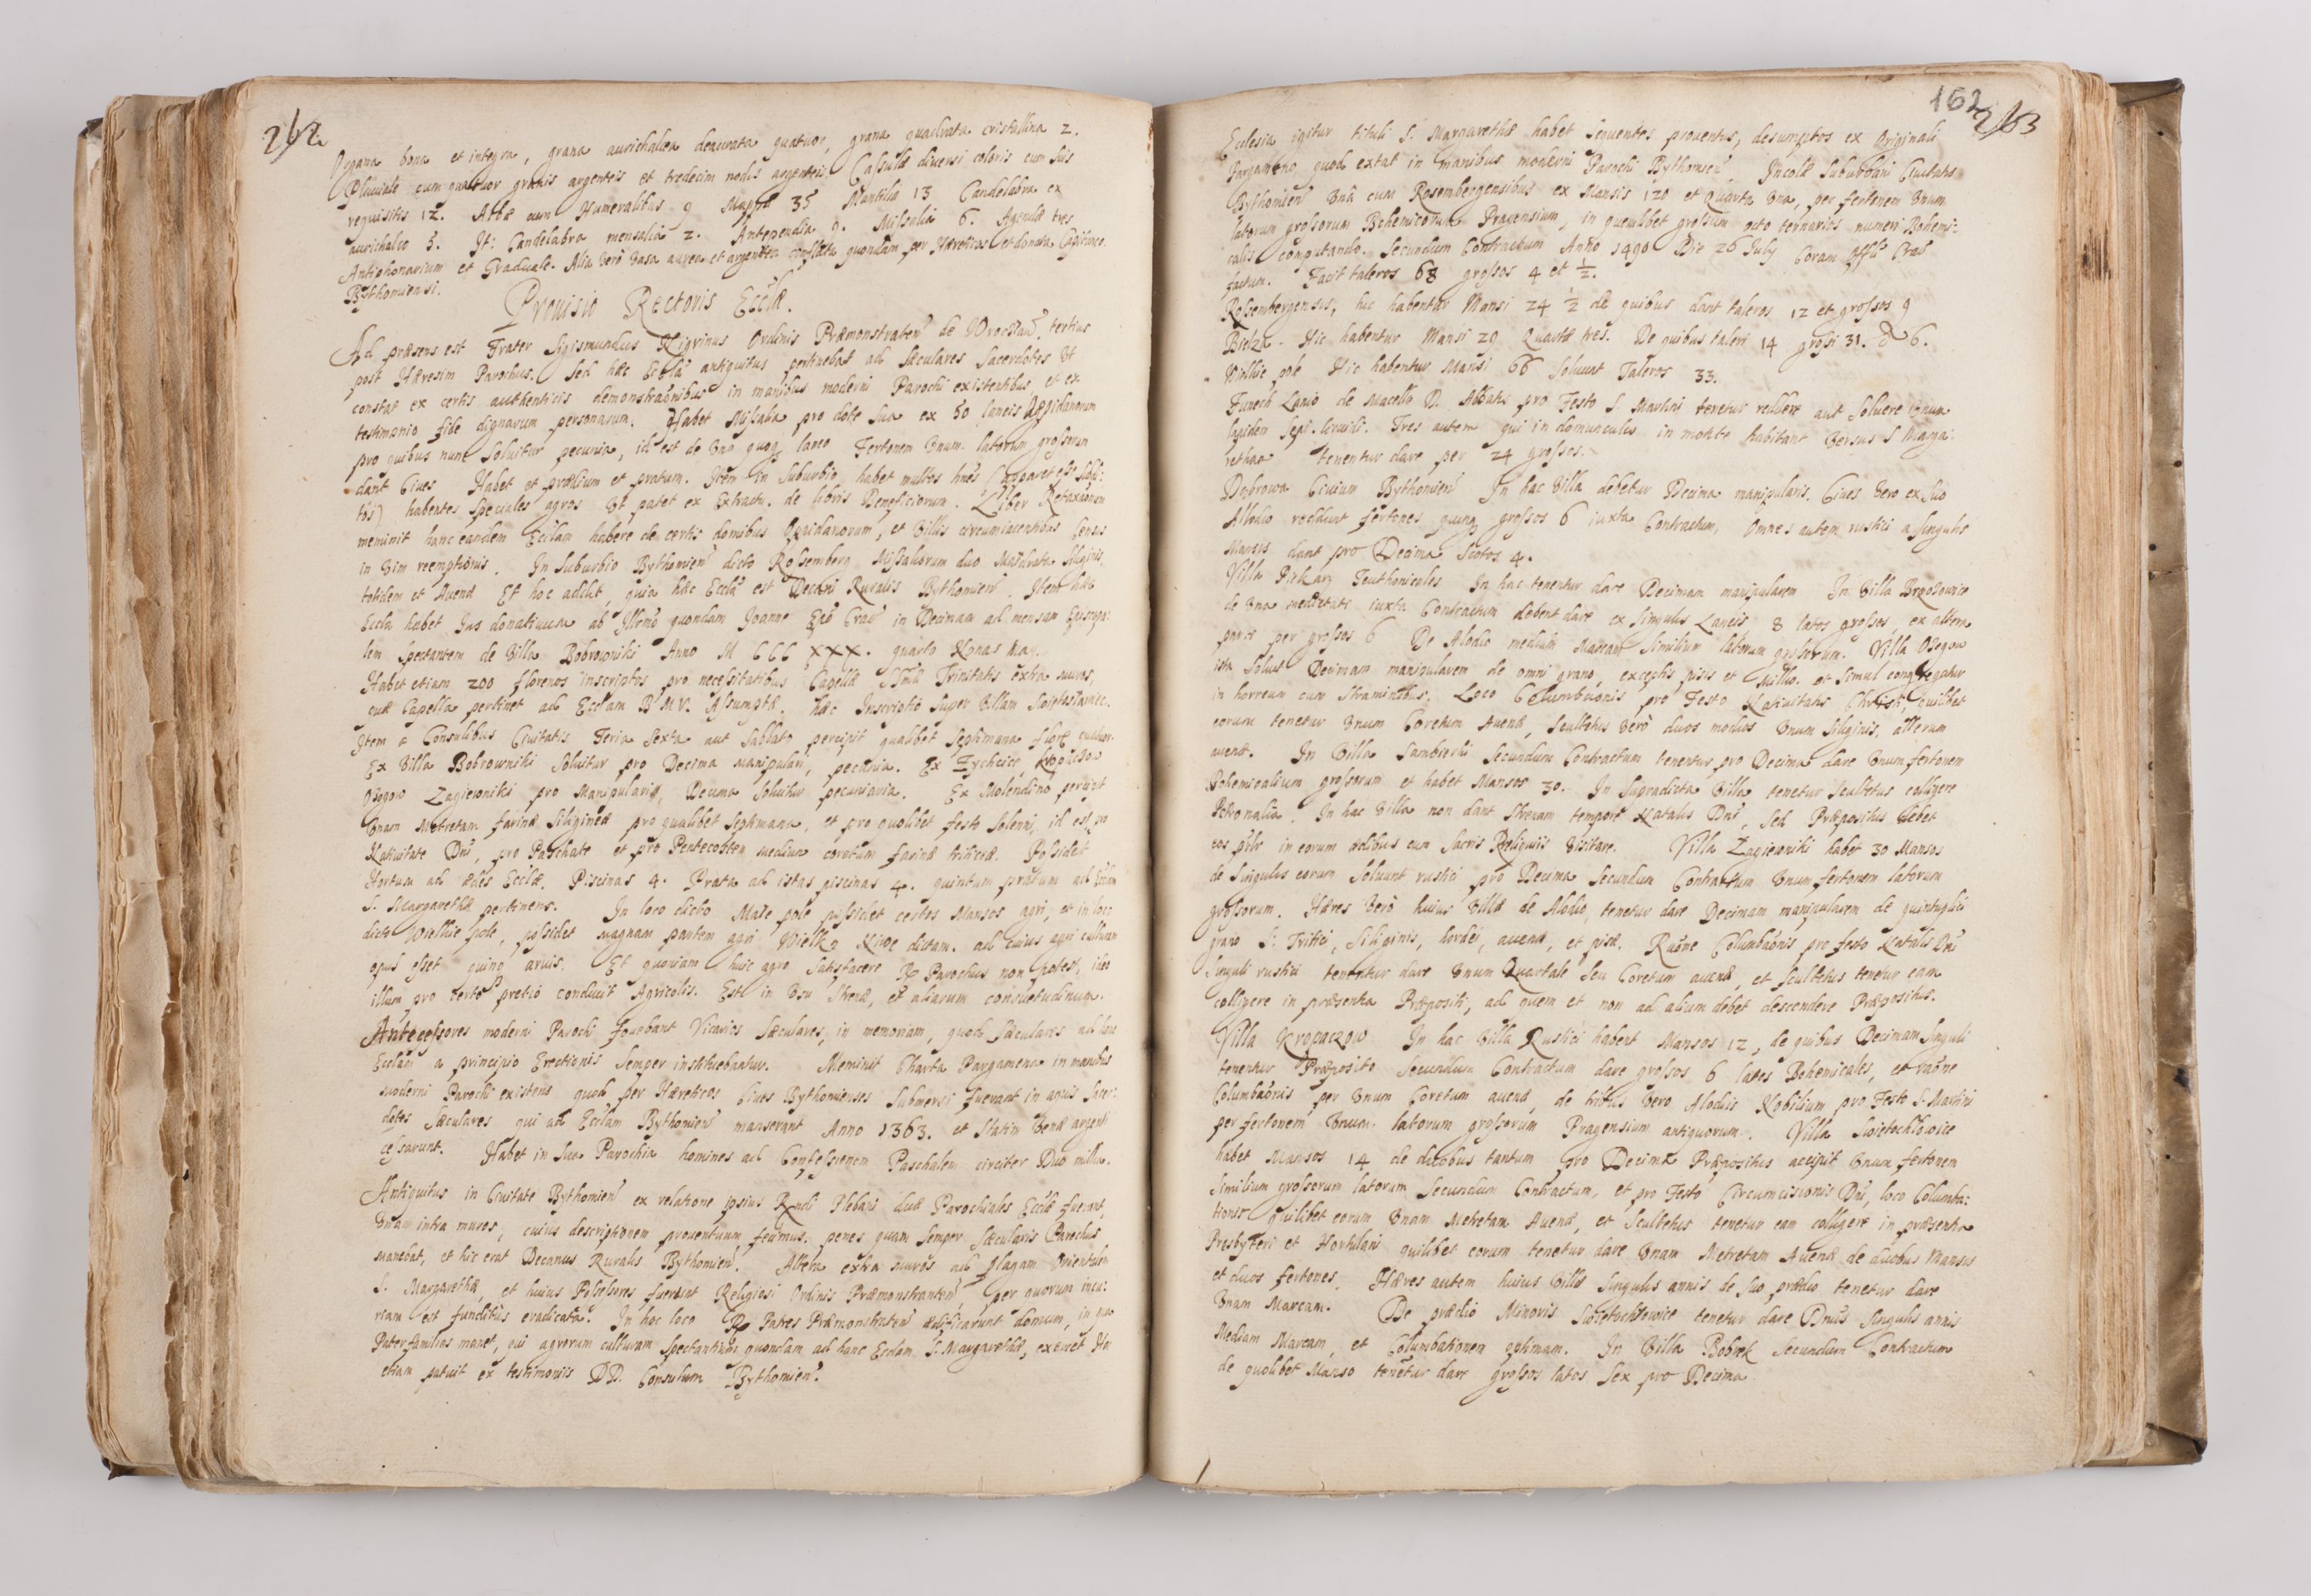 262
Organa bona et integra, grana aurichalcea deaurata quatuor, grana quadrata cristallina 2.
Pluviale cum quatuor granis argenteis et tredecim nodis argenteis. Casulæ diversi coloris cum suis
requisitis 12. Albæ cum Humeralibus 9 Mappæ 35 Mantilia 13 Candelabra ex
aurichalco 5. It: Candelabra mensalia 2. Antependia 9. Missalia 6. Agendæ tres
Antiphonarium et Graduale. Alia verò vasa aurea et argentea conflata quondam per Hæreticos et donata Capitaneo
Bythomiensi.
Provisio Rectoris Eccliæ.
Ad præsens est Frater Sigismundus Nigrinus Ordinis Præmonstraten de Wroclaw. tertius
post Hæresim Parochus. Sed hæc Ecclã antiquitus pertinebat ad sæculares sacerdotes Vt
constat ex certis authenticis demonstrationibus in manibus moderni Parochi existentibus et ex
testimonio fide dignarum personarum. Habet Missalia pro dote sua ex 50 laneis Oppidanorum
pro quibus nunc solvitur pecunia, id est de vno quoq laneo Fertonem vnum latorum grossorum
dant Cives Habet et prædium et pratum. Item in suburbio habet multos
habentes speciales agros Vt patet ex Extractu de libris Beneficiorum. Liber Retaxionum
meminit hanc eandem Ecclam habere de certis domibus Oppidanorum, et Villis circumiacentibus Census
in vim reemptionis. In suburbio Bythomien dicto Rosemberg Missaliorum duo Maldrata siliginis,
totidem et Avenæ Et hoc addit, quia hæc Ecclã est Decani Ruralis Bythomien. Item hæc
Eccla habet Ius donativum ab Illmo quondam Joanne Epõ Crac in Decimam ad mensam Episcopa:
lem spectantem de Villa Bobrowniki Anno M CCC XXX. quarto Nonas May.
Habet etiam 200 florenos inscriptos pro necessitatibus Capellæ SSmæ Trinitatis extra muros,
quæ Capella pertinet ad Ecclam B. M. V. Assumptæ. hæc Inscriptio super Villam
Item à Consulibus Civitatis Feria sexta aut Sabbato percipit qualibet septimana
Ex Villa Bobrowniki solvitur pro Decima manipulari, pecunia. Ex
Zagiewniki pro Manipulari, Decima solvitur pecuniaria. Ex Molendino percipit
vnam Metretam farinæ siligineæ pro qualibet septimana, et pro quolibet festo solenni, id est, pro
Nativitate Dni, pro Paschate et pro Pentecosten medium coretum farinæ triticeæ. Possidet
Hortum ad ædes Eccliæ. Piscinas 4. Prata ad istas piscinas 4. quintum pratum ad
S. Margarethæ pertinens. In loco dicto Małe pole possidet certos Mansos agri, et in loco
dicto Wielkie pole, possidet magnam partem agri Wielka Niwę dictam. ad cuius agri culturam
opus esset quinq arvis. Et quoniam huic agro satisfacere Parochus non potest, ideo
illum pro certo pretio conducit Agricolis. Est in vsu strenæ, et aliarum consuetudinum.
Antecessores moderni Parochi fovebant Vicarios sæculares, in memoriam, quod sæculares ad hanc
Ecclam a principio Erectionis semper instituebantur. Meminit Charta Pargamena in manibus
moderni Parochi existens quod per Hæreticos Cives Bythomienses submersi fuerant in aquis sacer:
dotes sæculares qui ad Ecclam Bythomien manserant Anno 1363. et statim venæ argenti
cessarunt. Habet in sua Parochia homines ad Confessionem Paschalem circiter Duo millia.
Antiquitus in Civitate Bythomien ex relatione ipsius Rndi Plebani duæ Parochiales Eccliæ fuerant,
vnam intra muros, cuius descriptionem proventuum fecimus, penes quam semper sæcularis Parochus
manebat, et hic erat Decanus Ruralis Bythomien. Altera extra muros ad plagam Orientalem
S. Margarethæ, et huius Possessores fuerant Religiosi Ordinis Præmonstraten, per quorum incu:
riam est funditùs eradicata. In hoc loco Patres Præmonstraten ædificarunt domum, in qua
Paterfamilias manet, qui agrorum culturam spectantium quondam ad hanc Ecclam S. Margarethæ, exercet Vti
etiam patuit ex testimoniis DD. Consulum Bythomien.
162
263
Ecclesia igitur tituli S. Margarethæ habet sequentes proventus, desumptos ex Originali
Pargameno quod extat in manibus moderni Parochi Bythomien. Incolæ suburbani Civitatis
Bythomien vnà cum Rosembergensibus ex Mansis 120 et Quarta vna, per fertonem vnum
latorum grossorum Bohemicorum Pragensium, in quemlibet grossum octo ternarios numeri Bohemi:
calis computando. Secundum Contractum Anno 1490 Die 26 July Coram Offlo Crac
factum. Facit taleros 68 grossos 4 et ½.
Rosembergensis, hic habentur Mansi 24 ½ de quibus dant taleros 12 et grossos 9
Hic habentur Mansi 20 Quartæ tres. De quibus taleri 14 grossi 31. 6.
Wielkie pole Hic habentur Mansi 66 solvunt Taleros 33.
Lanio de Macello D. Abbatis pro Festo S. Martini tenetur reddere aut solvere vnum
lapidem sepi. Tres autem qui in domunculis in monte habitant versus S Marga:
retham tenentur dare per 24 grossos.
Dobrowa Civium Bythomien In hac Villa debetur Decima manipularis. Cives vero ex suo
Allodio reddunt fertones quinq grossos 6 iuxta Contractum, Omnes autem rustici a singulis
Mansis dant pro Decima scotos 4.
Villa Piekary Teuthonicales In hac tenentur dare Decimam manipularem In Villa
de vna medietate iuxta Contractum debent dare ex singulis Laneis 8 latos grossos, ex altera
parte per grossos 6 De Alodio mediam Marcam similium latorum grossorum. Villa
ista solvit Decimam manipularem de omni grano, exceptis pisis et milio. et simul congregatur
in horreum cum straminibus. Loco Columbaonis pro Festo Nativitatis Christi, quilibet
eorum tenetur vnum Coretum Avenæ, Scultetus verò duos modios vnum siliginis, alterum
avenæ. In Villa secundum Contractum tenentur pro Decima dare vnum fertonem
Bohemicalium grossorum et habet Mansos 30. In supradicta Villa tenetur scultetus colligere
Petronalia. In hac Villa non dant strenam tempore Natalis Dni, sed Præpositus debet
eos in eorum ædibus cum sacris Reliquiis visitare. Villa Zagiewniki habet 30 Mansos
de singulis eorum solvunt rustici pro Decima secundum Contractum vnum fertonem latorum
grossorum. Hæres verò huius Villæ de Alodio tenetur dare Decimam manipularem de quintuplici
grano S: Tritici, siliginis, hordei, avenæ, et pisæ. Raõne Columbaõnis pro festo Natalis Dni
singuli rustici tenentur dare vnum Quartale seu Coretum avenæ, et scultetus tenetur eam
colligere in præsentia Præpositi, ad quem et non ad alium debet descendere Præpositus.
Villa Kropaczow In hac Villa Rustici habent Mansos 12, de quibus Decimam singuli
tenentur Præposito secundum Contractum dare grossos 6 latos Bohemicales, et raõne
Columbaõnis per vnum Coretum avenæ, de tribus vero Alodiis Nobilium pro Festo S. Martini
per fertonem vnum latorum grossorum Pragensium antiquorum. Villa Swietochlowice
habet Mansos 14 de duobus tantum pro Decima Præpositus accipit vnum fertonem
similium grossorum latorum secundum Contractum, et pro Festo Circumcisionis Dni, loco Columba:
tionis quilibet eorum vnam Metretam Avenæ, et scultetus tenetur eam colligere in præsentia
Presbyteri et Hortulani quilibet eorum tenetur dare vnam Metretam Avenæ de duobus Mansis
et duos fertones. Hæres autem huius Villæ singulis annis de suo prædio tenetur dare
vnam Marcam. De prædio Minoris Swietochlowice tenetur dare Dnus singulis annis
Mediam Marcam, et Columbationem optimam. In Villa Bobrek secundum Contractum
de quolibet Manso tenetur dare grossos latos sex pro Decima